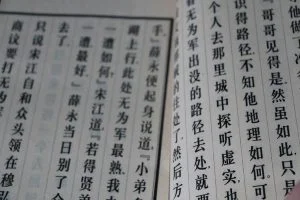 『哥哥见得是.然虽如此.只是
识得路径.不知他地理如何.可
个人去那里城中探听虚实.也
为军出没的路径去处.就要
的住处了.然后方
手.薛永便起身说道『小弟
湖上行.此处无为军最熟.我
一遭如何』宋江道『若得贤
一遭最好』薛永当日别了
去了.
只说宋江自和众头领在穆弘
商议要打无为